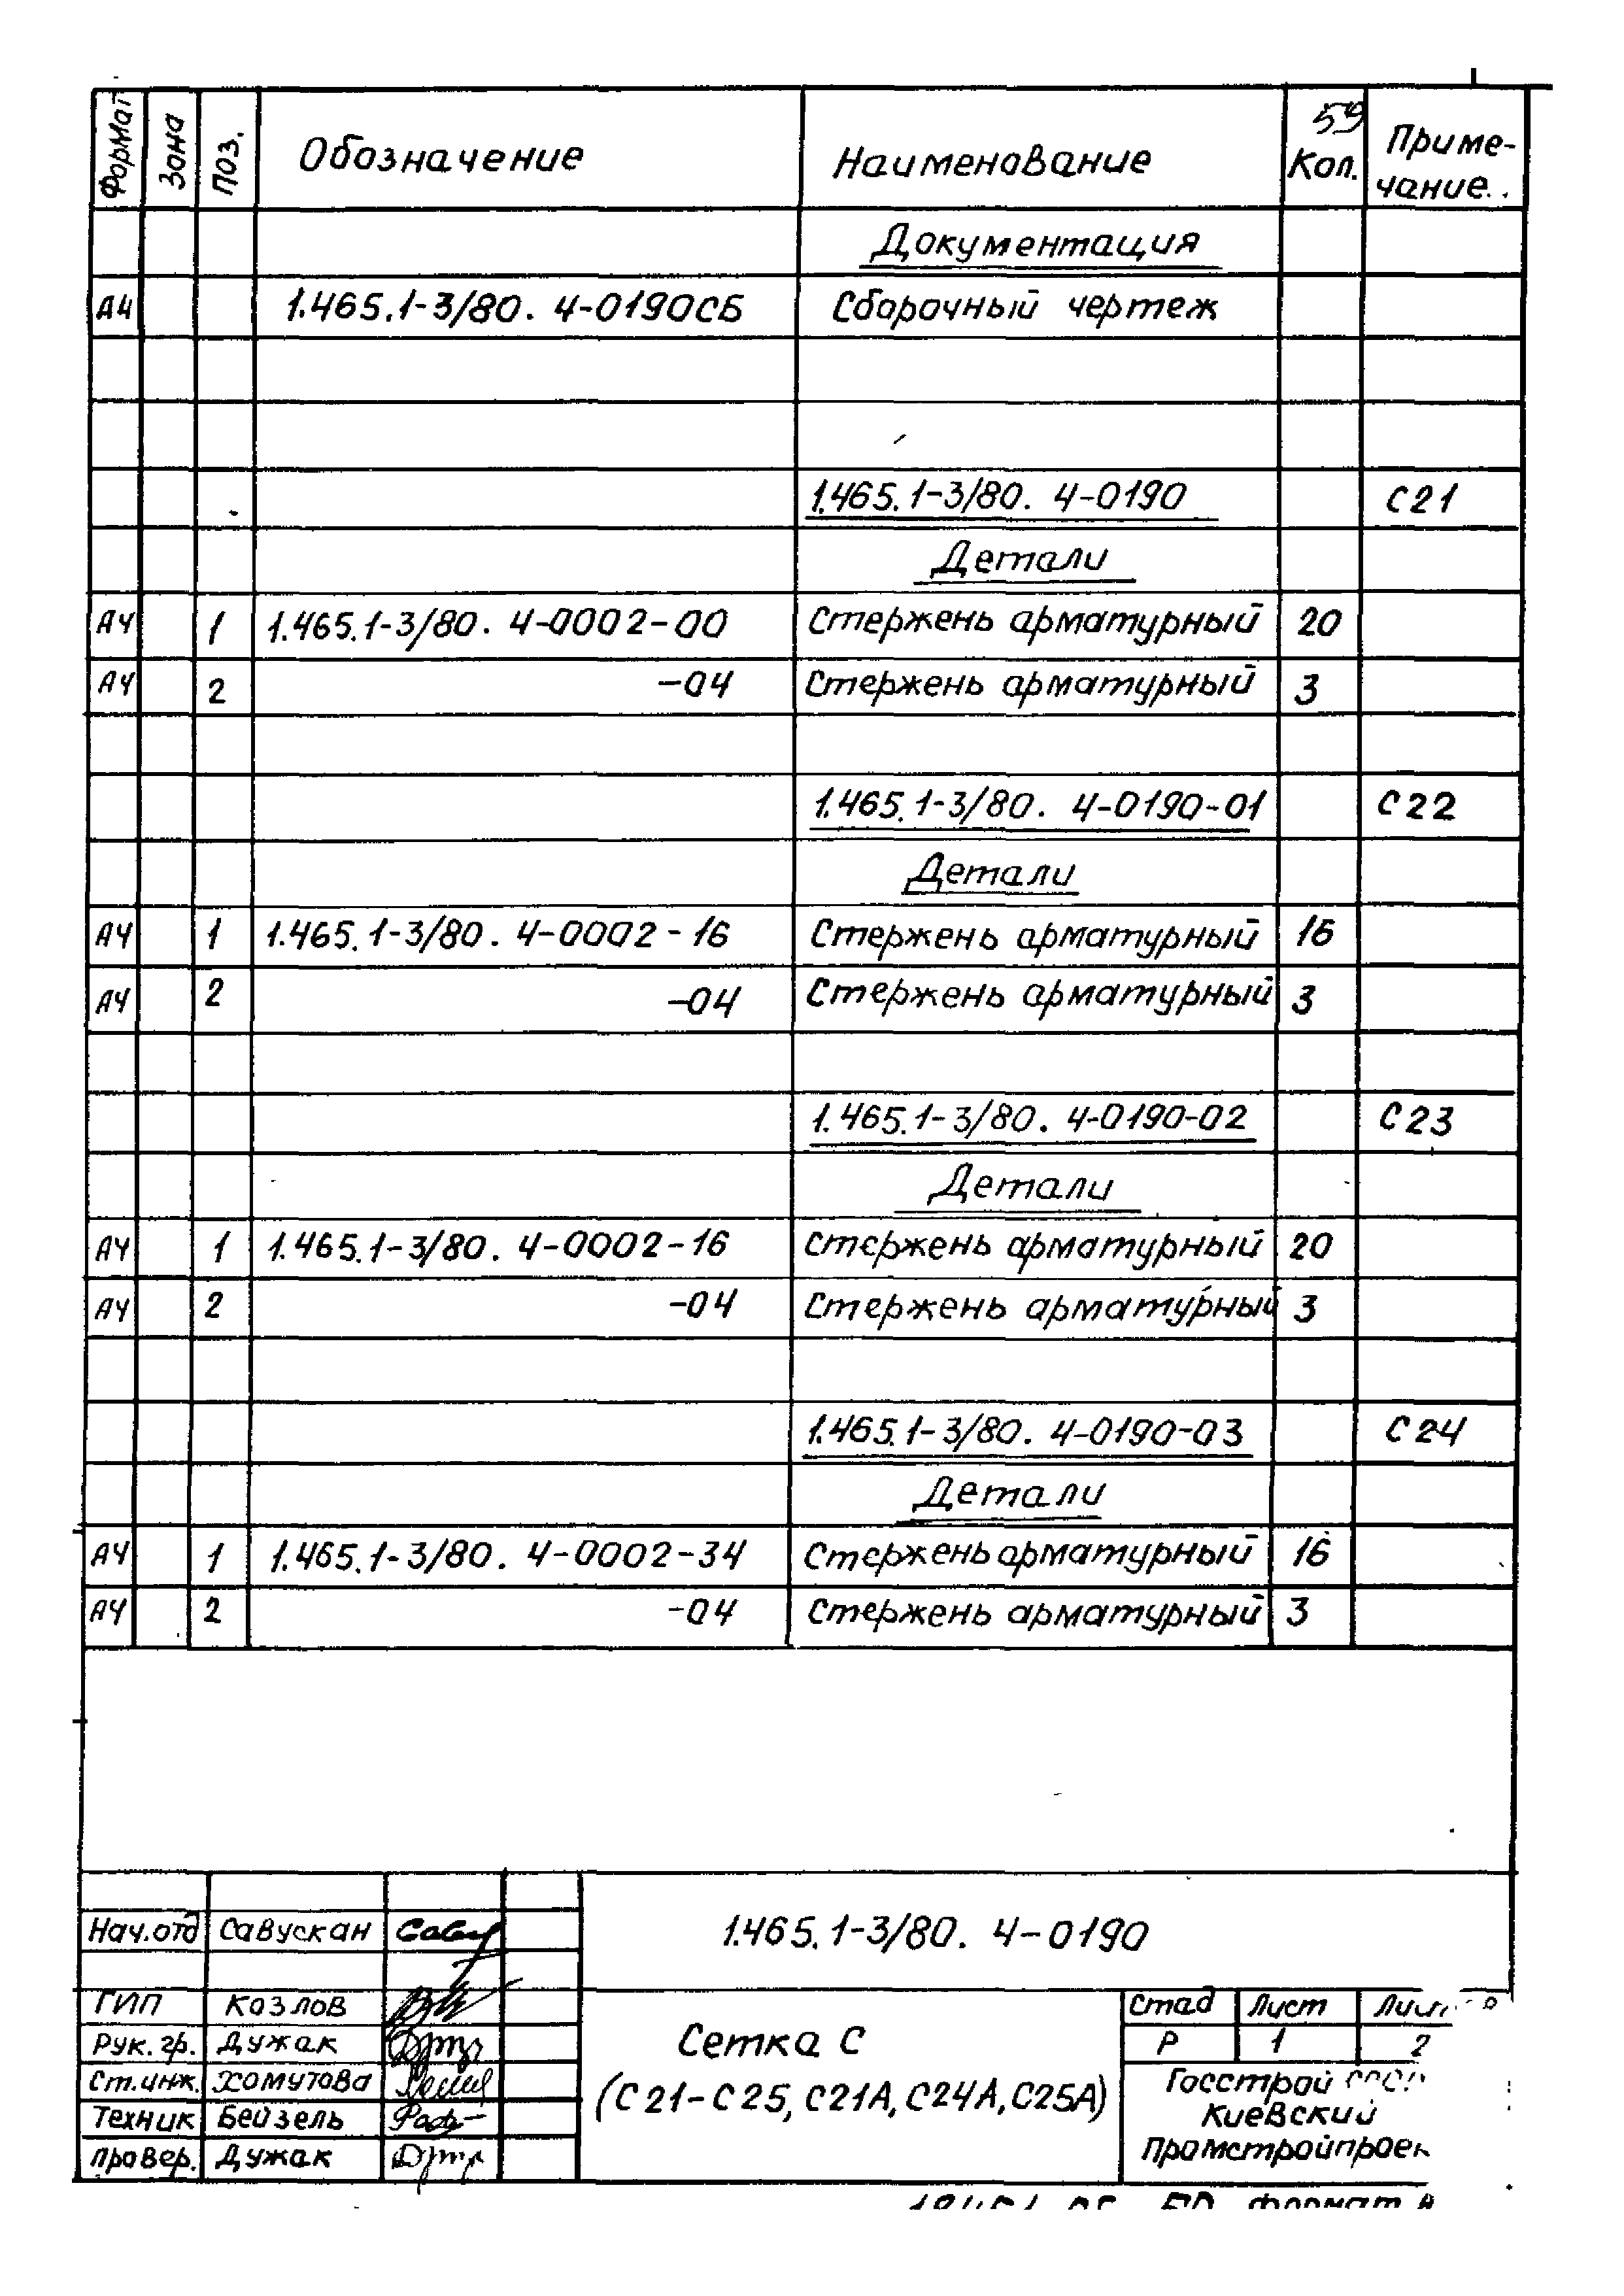 59
Формат Зона Поз. Обозначение Наименование Кол. Приме-
чание.
Документация
А4 1.465.1-3/80. 4-0190СБ Сборочный чертеж
1.465.1-3/80. 4-0190 С21
Детали
А4 1 1.465.1-3/80. 4-0002-00 Стержень арматурный 20
А4 2 -04 Стержень арматурный 3
1.465.1-3/80. 4-0190-01 С22
Детали
А4 1 1.465.1-3/80. 4-0002-16 Стержень арматурный 16
А4 2 -04 Стержень арматурный 3
1.465.1-3/80. 4-0190-02 С23
Детали
А4 1 1.465.1-3/80. 4-0002-16 Стержень арматурный 20
А4 2 -04 Стержень арматурный 3
1.465.1-3/80. 4-0190-03 С24
Детали
А4 1 1.465.1-3/80. 4-0002-34 Стержень арматурный 16
А4 2 -04 Стержень арматурный 3
Нач.отд Савускан
1.465.1-3/80. 4-0190
ГИП Козлов
Рук. гр. Дужак
Ст.инж. Хомутова
Техник Бейзель
Провер. Дужак
Сетка С
(С21-С25, С21А, С24А, С25А)
Стад Лист
Р 1 2
Госстрой
Киевский
Промстройпроек
формат